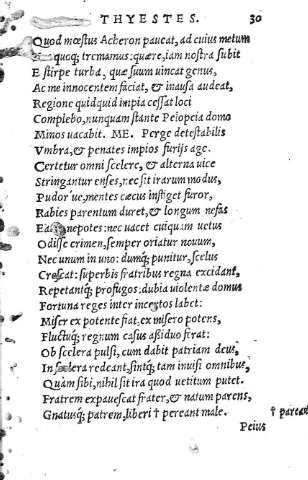 THYESTES. 30
Quod mœstus Acheron paueat, ad cuius metum
quoq; tremamus: quære, iam nostra subit
E stirpe turba, quæ suum uincat genus,
Ac me innocentem faciat, & inausa audeat,
Regione quidquid impia cessat loci
Complebo, nunquam stante Pelopeia domo
Minos uacabit. ME. Perge detestabilis
Vmbra, & penates impios furijs age.
Certetur omni scelere, & alterna uice
Stringantur enses, nec sit irarum modus,
Pudor ue, mentes cæcus instiget furor,
Rabies parentum duret, & longum nefas
Eat nepotes: nec uacet cuiquam uetus
Odisse crimen, semper oriatur nouum,
Nec unum in uno: dumq; punitur, scelus
Crescat: superbis fratribus regna excidant,
Repetantq; profugos: dubia uiolentæ domus
Fortuna reges inter incertos labet:
Miser ex potente fiat, ex misero potens,
Fluctuq; regnum casus assiduo ferat:
Ob scelera pulsi, cum dabit patriam deus,
In scelera redeant, sintq; tam inuisi omnibus,
Quàm sibi, nihil sit ira quod uetitum putet.
Fratrem expauescat frater, & natum parens,
Gnatusq; patrem, liberi † pereant male. † pareat
Peius